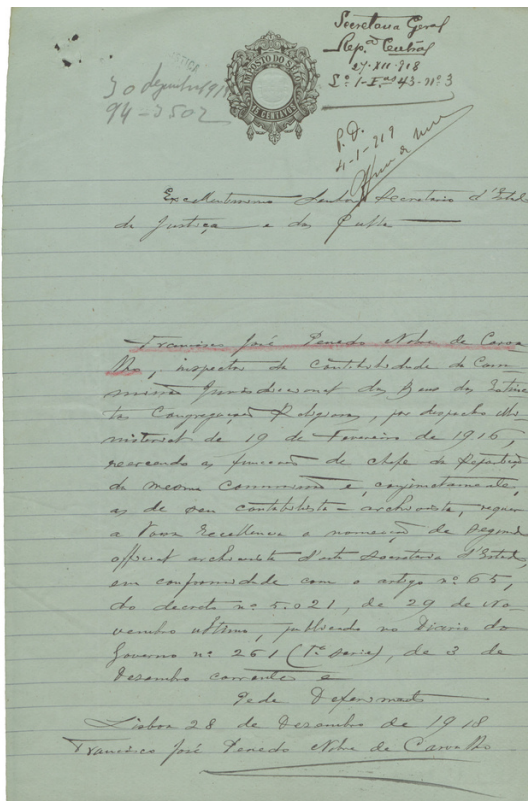 Secretaria Geral
Rep.ão Central
27-XII-918
L.º 1-F.as 43-nº 3
30 dezembro 91
94-3502
IMPOSTO DO SELLO
P. D.
4-1-919
Excellentissimo Senhor Secretario d'Estado
da Justiça e dos Cultos
Francisco José Penedo Nobre de Carva
lho, inspector da contabilidade da Com
missão Jurisdiccional dos Bens das Extinc
tas Congregações Religiosas, por despacho Mi
nisterial de 19 de Fevereiro de 1916,
exercendo as funcções de chefe da Repartição
da mesma Commissão e, conjunctamente,
as de seu contabilista-archivista, requer
a Vossa Excellencia a nomeação de segundo
official archivista d'esta Secretaria d'Estado,
em conformidade com o artigo nº 65,
do decreto nº 5.021, de 29 de No
vembro ultimo, publicado no Diario do
Governo nº 261 (1ª serie), de 3 de
Dezembro corrente e
Pede Deferimento
Lisboa 28 de Dezembro de 1918
Francisco José Penedo Nobre de Carvalho